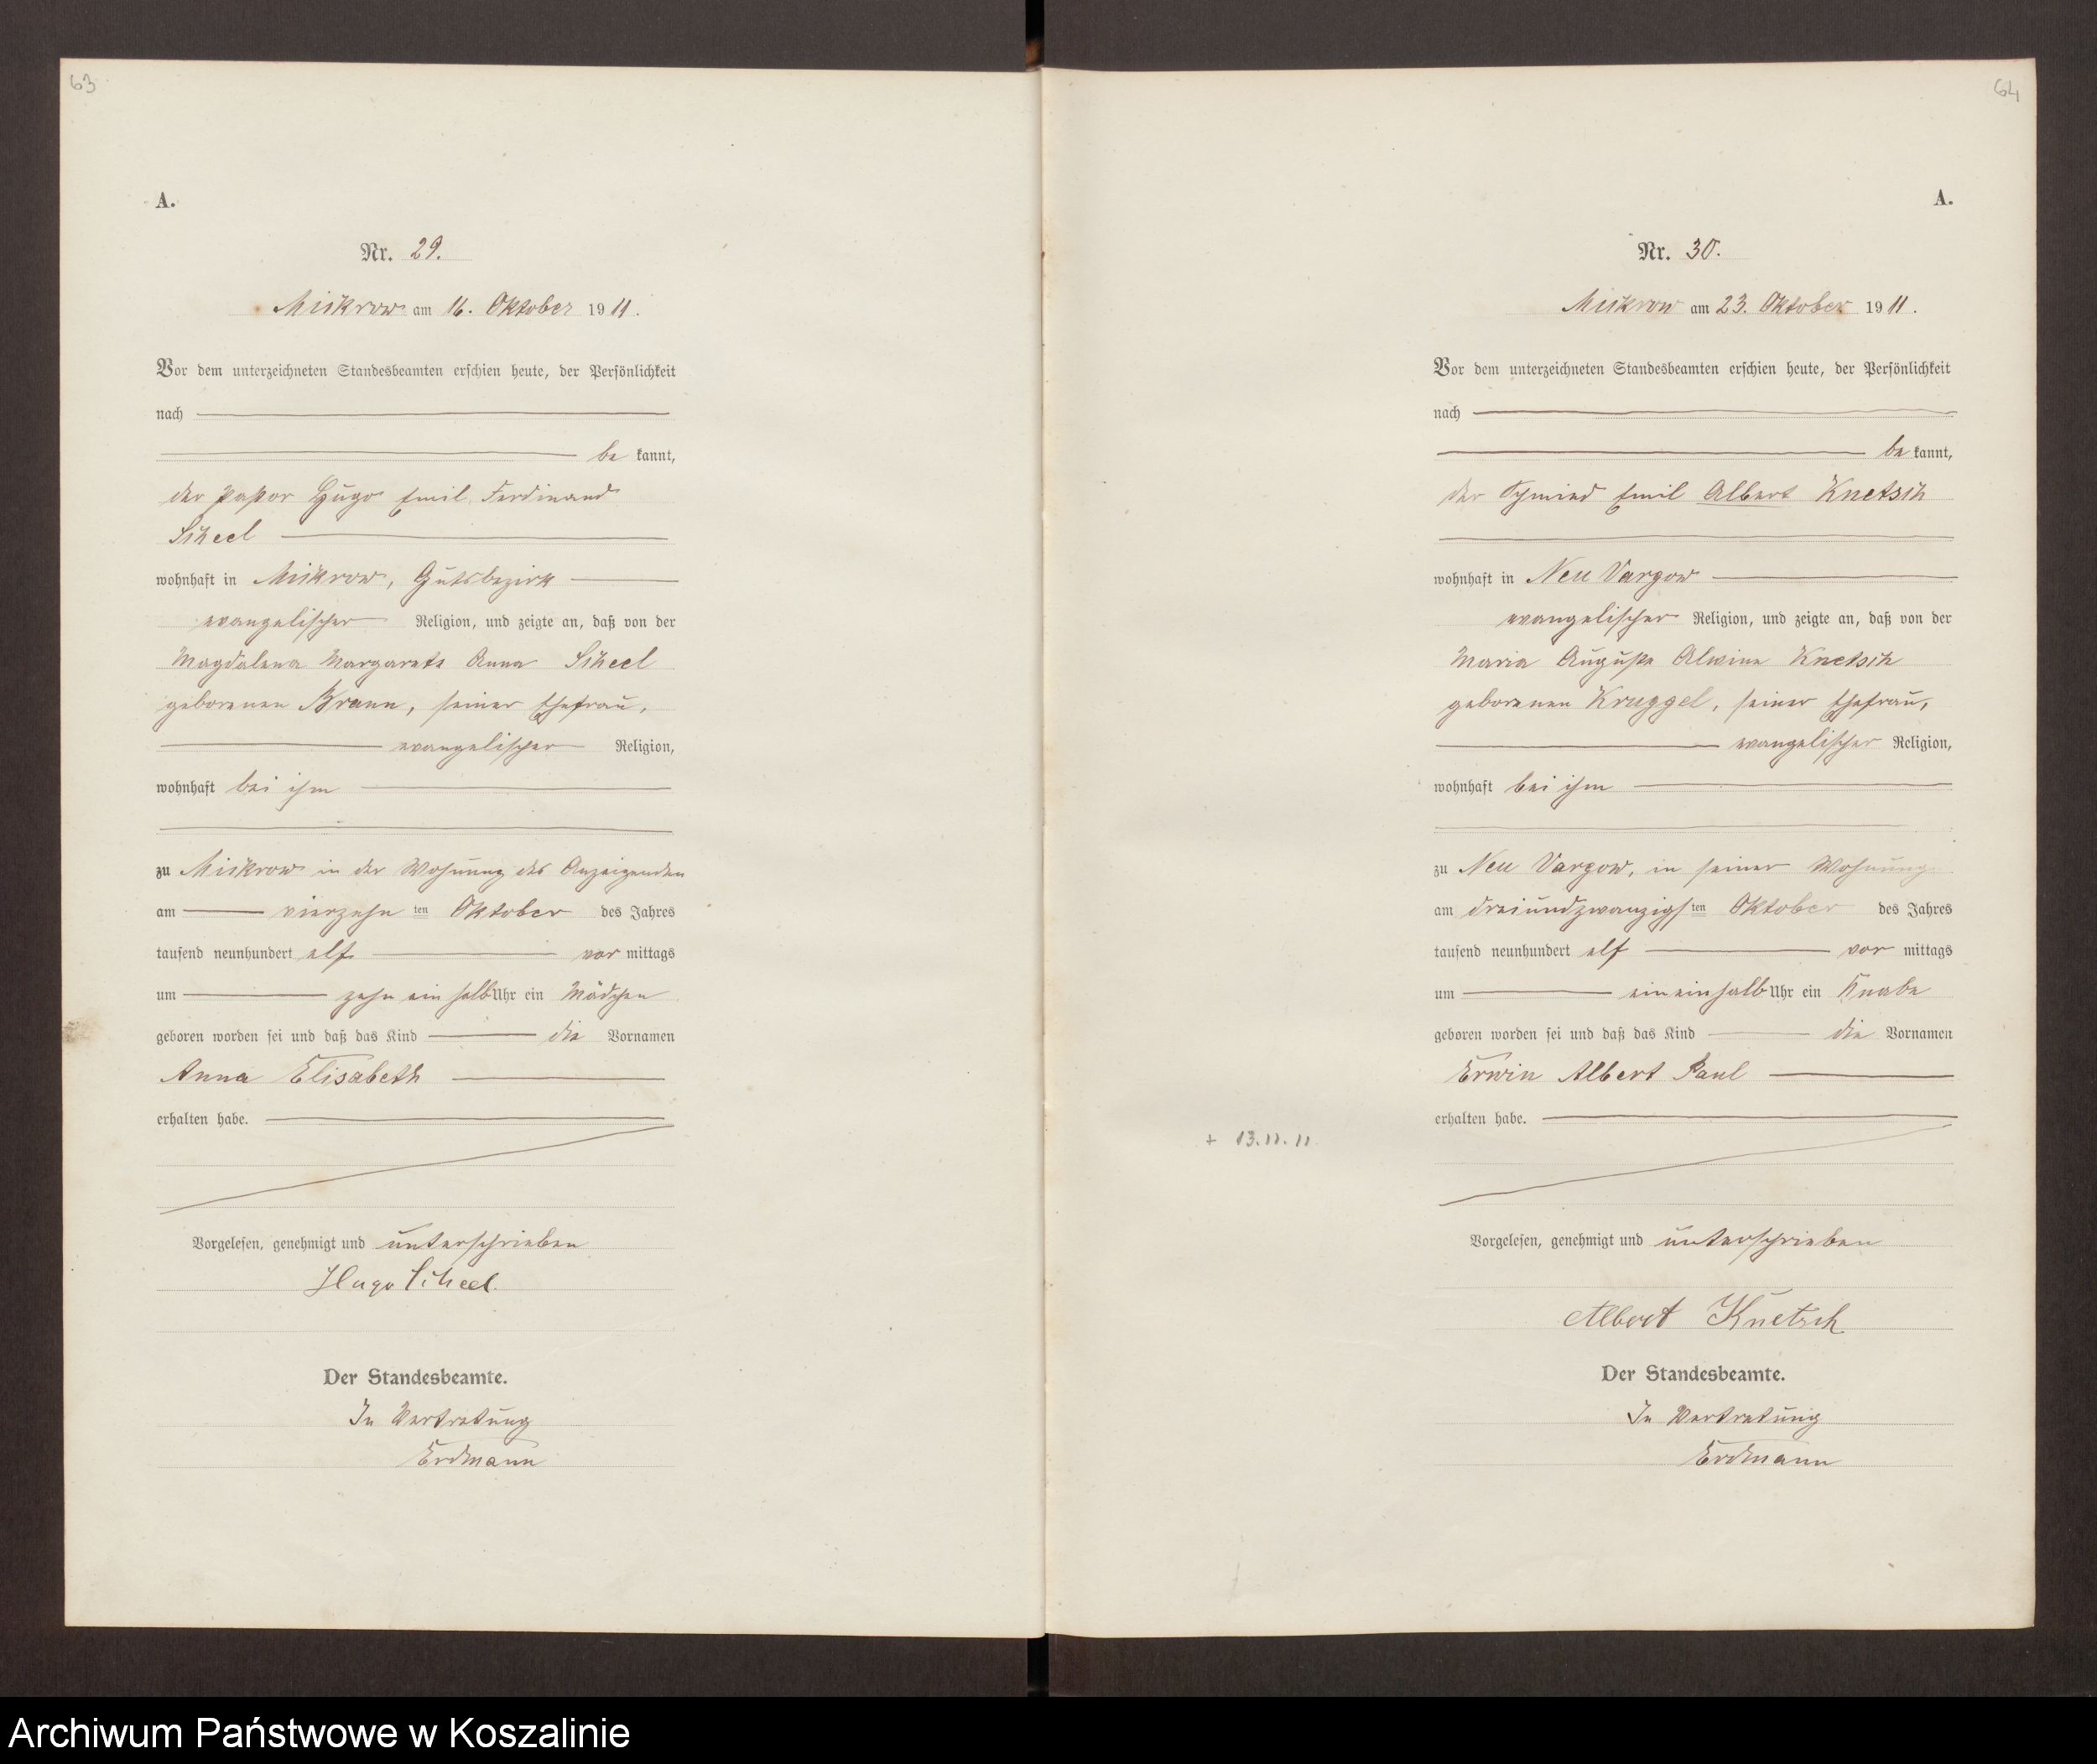 63
A.
Nr. 29.
Mickrow am 16. Oktober 1911.
Vor dem unterzeichneten Standesbeamten erschien heute, der Persönlichkeit
nach
be kannt,
der Pastor Hugo Emil Ferdinand
Scheel
wohnhaft in Mickrow, Gutsbezirk
evangelischer Religion, und zeigte an, daß von der
Magdalena Margarete Anna Scheel
geborenen Braun, seiner Ehefrau,
evangelischer Religion,
wohnhaft bei ihm
zu Mickrow in der Wohnung des Anzeigenden
am vierzehn ten Oktober des Jahres
tausend neunhundert elf vor mittags
um zehn ein halb Uhr ein Mädchen
geboren worden sei und daß das Kind die Vornamen
Anna Elisabeth
erhalten habe.
Vorgelesen, genehmigt und unterschrieben
Hugo Scheel.
Der Standesbeamte.
In Vertretung
Erdmann
64
A.
Nr. 30.
Mickrow am 23. Oktober 1911.
Vor dem unterzeichneten Standesbeamten erschien heute, der Persönlichkeit
nach
be kannt,
der Schmied Emil Albert Knetsch
wohnhaft in Neu Vargow
evangelischer Religion, und zeigte an, daß von der
Maria Auguste Alwine Knetsch
geborenen Kruggel, seiner Ehefrau,
evangelischer Religion,
wohnhaft bei ihm
zu Neu Vargow, in seiner Wohnung
am dreiundzwanzigs ten Oktober des Jahres
tausend neunhundert elf vor mittags
um ein einhalb Uhr ein Knabe
geboren worden sei und daß das Kind die Vornamen
Erwin Albert Paul
erhalten habe.
+ 13.11.11
Vorgelesen, genehmigt und unterschrieben
Albert Knetsch
Der Standesbeamte.
In Vertretung
Erdmann
Archiwum Państwowe w Koszalinie